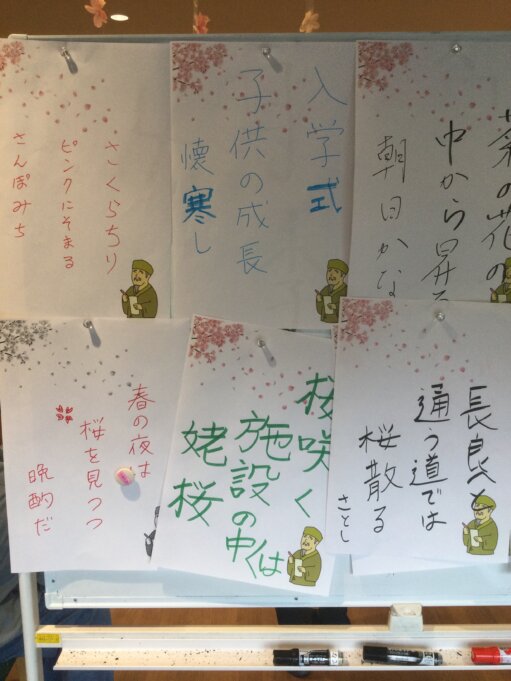 菜の花の
中から昇る
朝日かな
入学式
子供の成長
懐寒し
さくらちり
ピンクにそまる
さんぽみち
長良へと
通う道では
桜散る
さとし
桜咲く
施設の中は
姥桜
春の夜は
桜を見つつ
晩酌だ